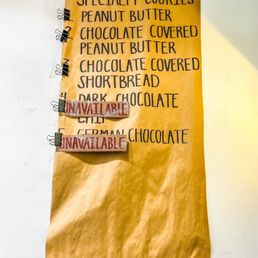 SPECIALTY COOKIES
PEANUT BUTTER
CHOCOLATE COVERED
PEANUT BUTTER
CHOCOLATE COVERED
SHORTBREAD
4 DARK CHOCOLATE
UNAVAILABLE
CHIP
5 GERMAN CHOCOLATE
UNAVAILABLE